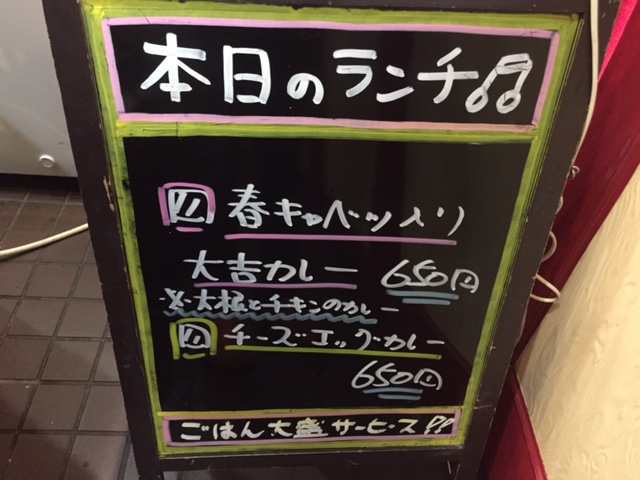 本日のランチ♫
春キャベツ入り
大吉カレー 650円
※大根とチキンのカレー
チーズエッグカレー
650円
ごはん大盛サービス!!